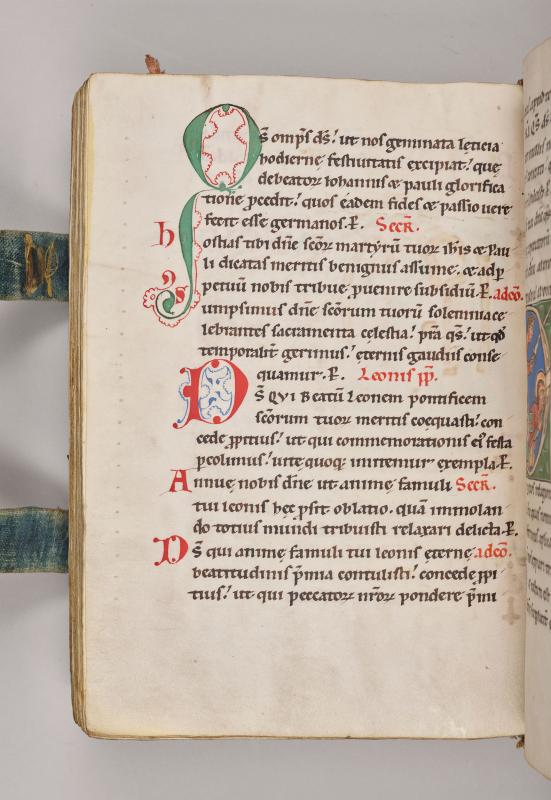 Qs omps ds. ut nos geminata leticia
hodierne festiuitatis excipiat. que
debeator iohannis & pauli glorifica
tione pcedit. quos eadem fides & passio uere
fecit esse germanos. P. Secr.
hostias tibi dne scor martyru tuor ihis & Pau
li dicatas meritis benignus assume. & adp
petuu nobis tribue puenire subsidiu. P. adco.
Sumpsimus dne scorum tuoru solemnia ce
lebrantes sacramenta celestia. pra qs. ut qd
temporalit gerimus. eternis gaudiis conse
quamur. P. Leonis pp.
Ds QUI BEATU Leonem pontificem
scorum tuor meritis coequasti. con
cede ppitius. ut qui commemorationis ei festa
pcolimus. uite quoq; imitemur exempla. P.
Annue nobis dne ut anime famuli Secr.
tui leonis hec psit oblatio. qua immolan
do totius mundi tribuisti relaxari delicta. P.
Ds qui anime famuli tui leonis eterne adco.
beatitudinis pmia contulisti. concede ppi
tius. ut qui peccator nror pondere pmi